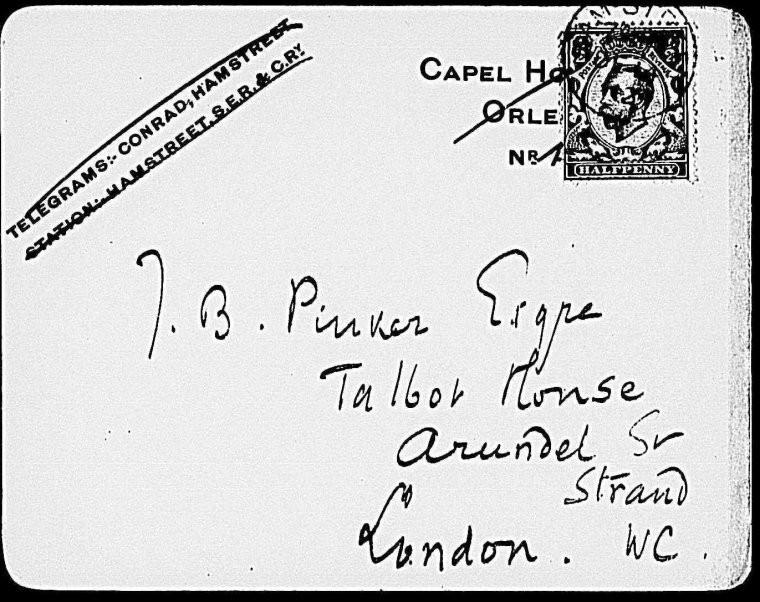 TELEGRAMS:- CONRAD, HAMSTREET
STATION:- HAMSTREET, S.E.R. & C.RY
CAPEL HO
ORLE
NR
HALFPENNY
J. B. Pinker Esqre
Talbot House
Arundel St
Strand
London. WC.